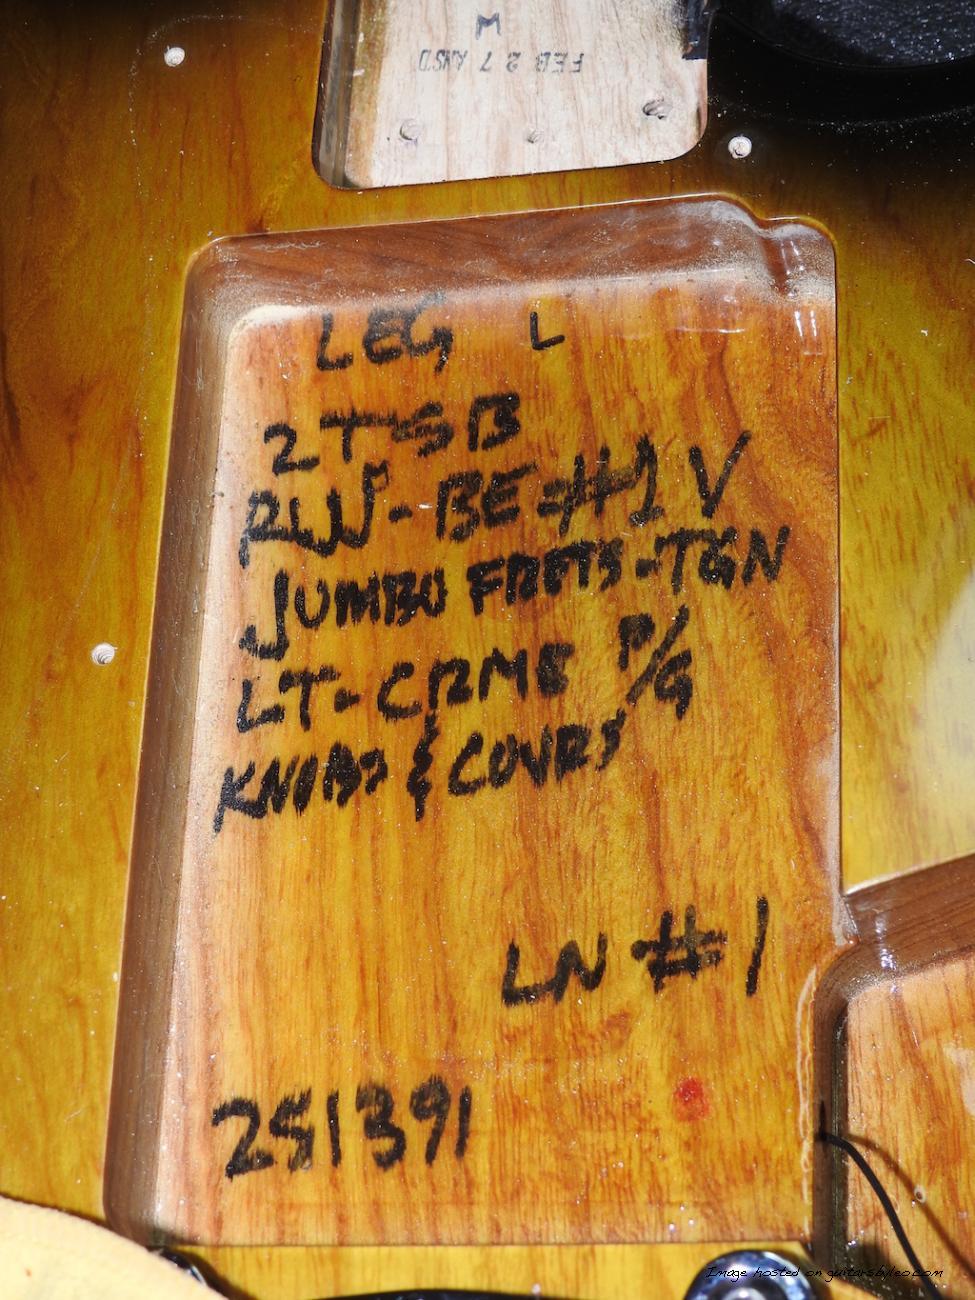 M
FEB 27 ANSD
LEG L
2TSB
RW-BE #1 V
JUMBO FRETS-TGN
LT-CRME P/G
KNOBS & COVRS
LN #1
251391
Image hosted on guitarsbyleo.com